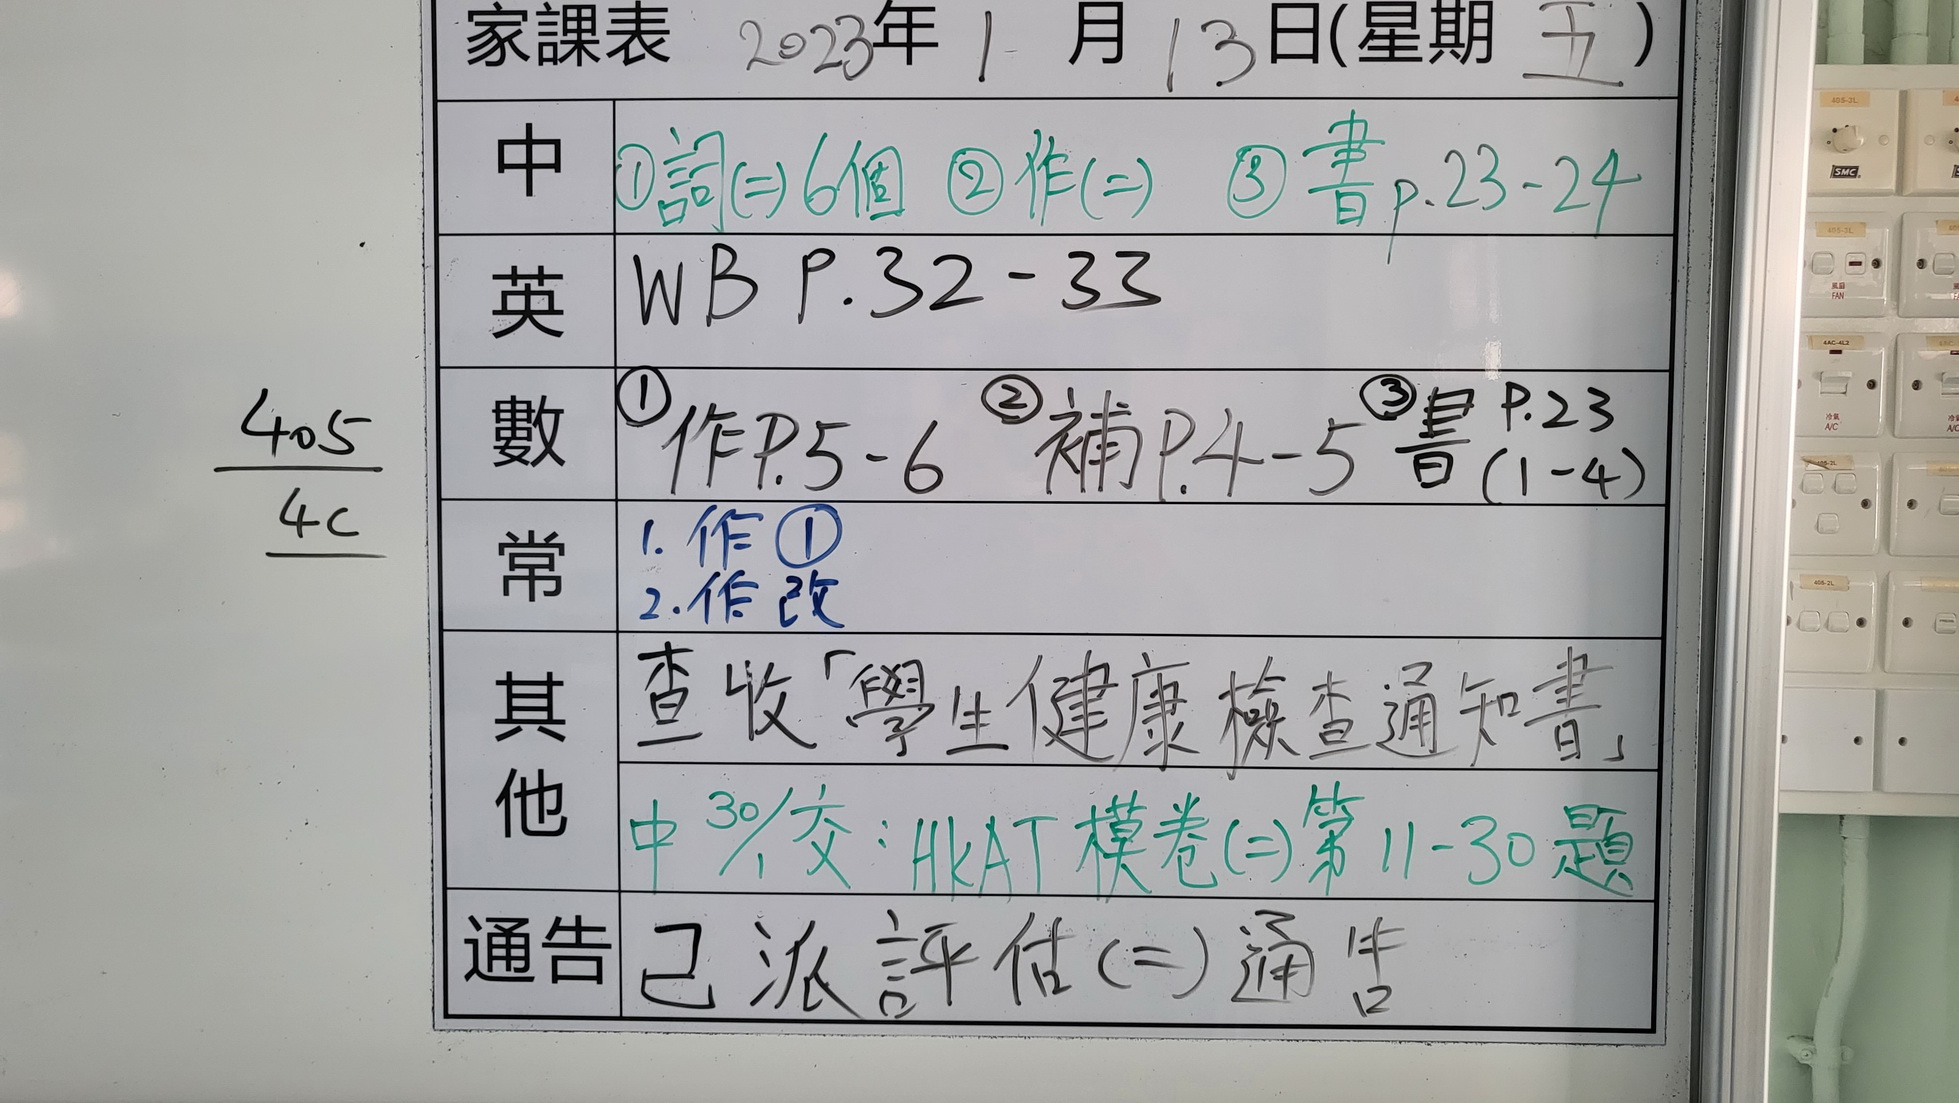 家課表 2023年 1 月 13日(星期 五)
中 ①詞(二)6個 ②作(二) ③書p.23-24
英 WB P.32-33
數 ①作P.5-6 ②補P.4-5 ③書 P.23 (1-4)
405
4C
常 1. 作①
2. 作改
其他 查收「學生健康檢查通知書」
中 30/1交:HKAT 模卷(二)第11-30題
通告 已派評估(二)通告
405-2L
SMC
405-3L
風扇
FAN
4AC-4L2
冷氣
A/C
405-2L
405-2L